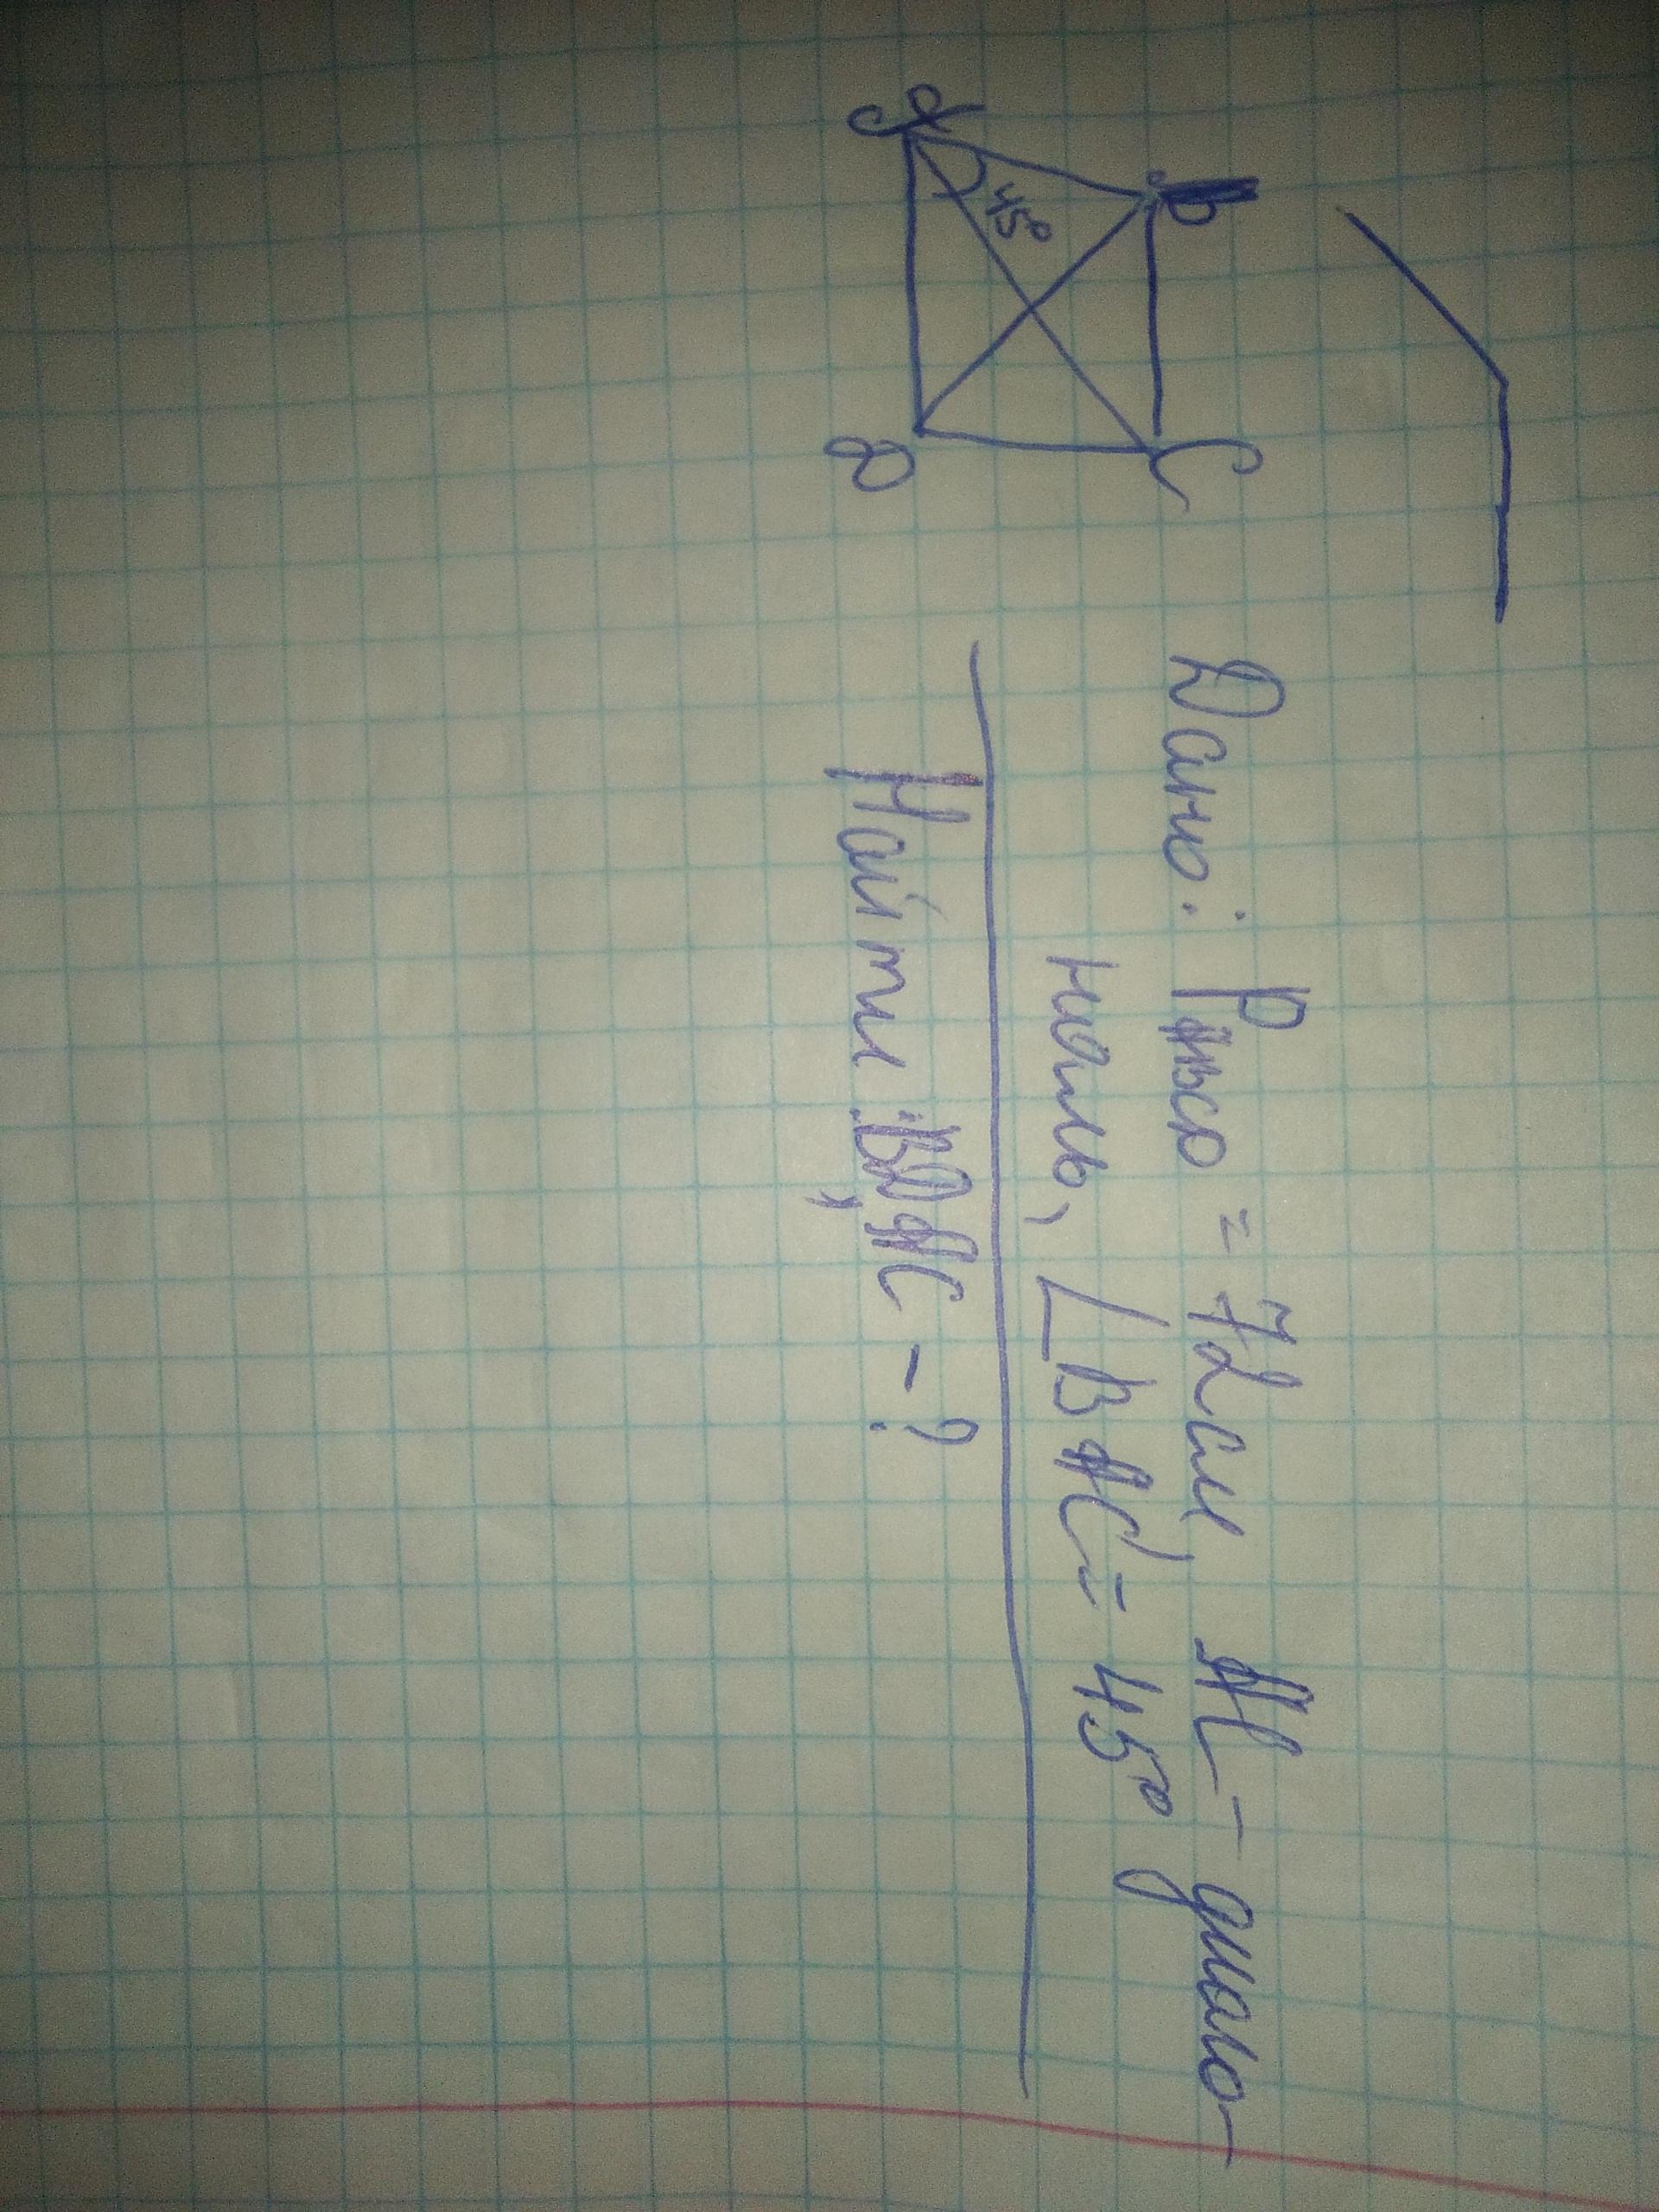 B
C
45°
A
D
Дано: PABCD = 72см, AC - диаго-
наль, ∠BAC = 45°
Найти: BD, AC - ?